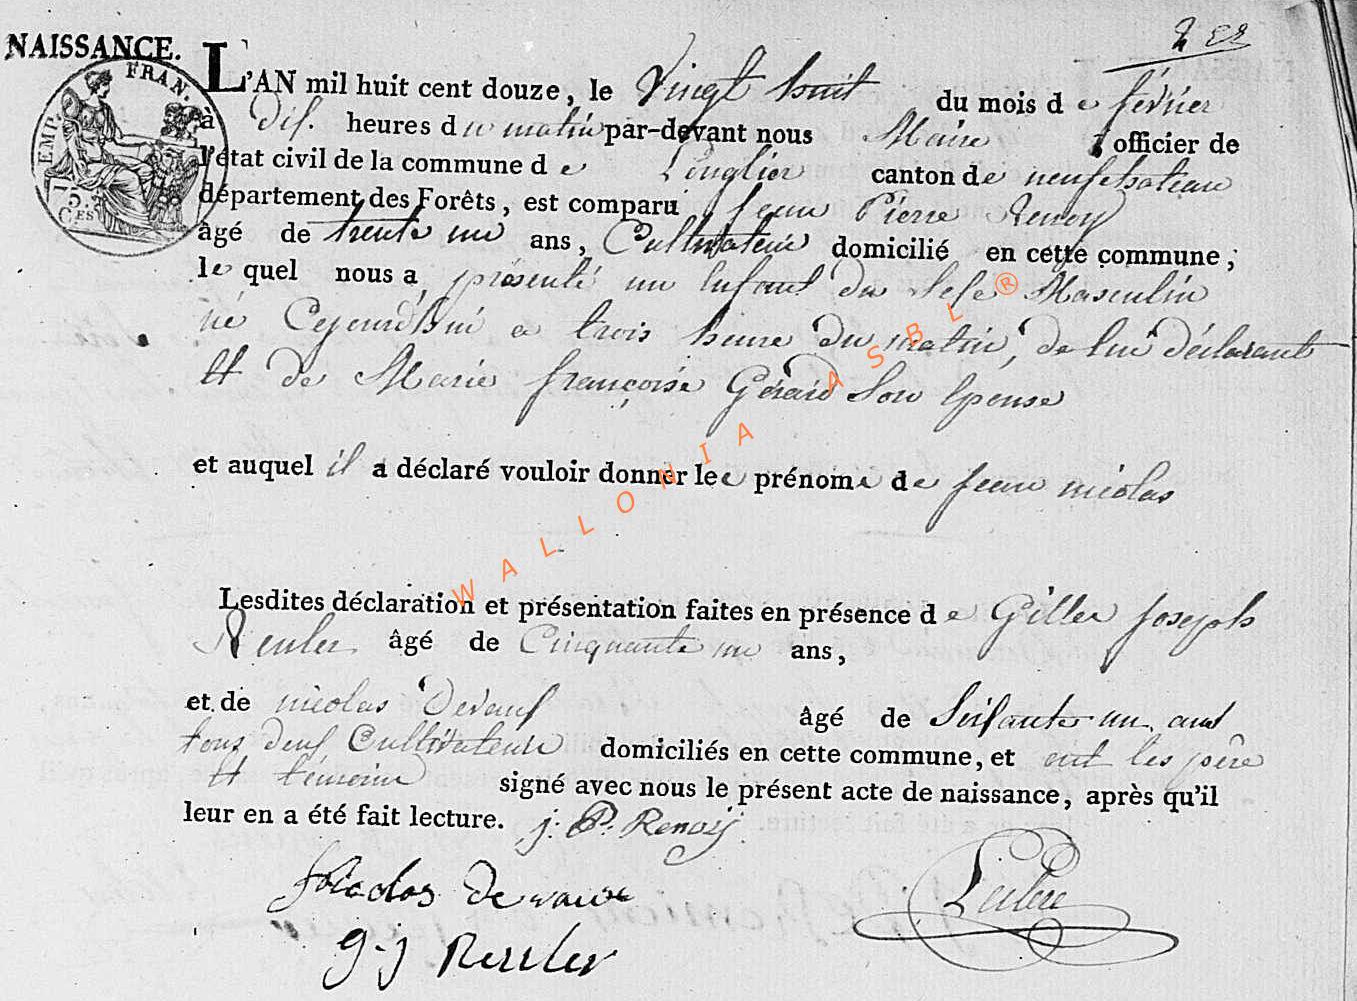 NAISSANCE.
EMP. FRAN.
75. CES
L'AN mil huit cent douze, le Vingt huit du mois de février
à Dix heures du matin par-devant nous Maire officier de
l'état civil de la commune de Longlier canton de neufchateau
département des Forêts, est comparu Jean Pierre Renoy
âgé de trente un ans, Cultivateur domicilié en cette commune;
le quel nous a présenté un Enfant du Sexe Masculin
né Cejourdhui a trois heure du matin, de lui déclarant
Et de Marie françoise Gérard Son Epouse
et auquel il a déclaré vouloir donner les prénoms de jean nicolas
Lesdites déclaration et présentation faites en présence de Gilles joseph
Reuler âgé de Cinquante un ans,
et de nicolas Devaux âgé de Soixante un ans
tous deux Cultivateurs domiciliés en cette commune, et ont les père
Et témoins signé avec nous le présent acte de naissance, après qu'il
leur en a été fait lecture. j: P: Renoy
Dewaux
g-j
WALLONIA ASBL ®